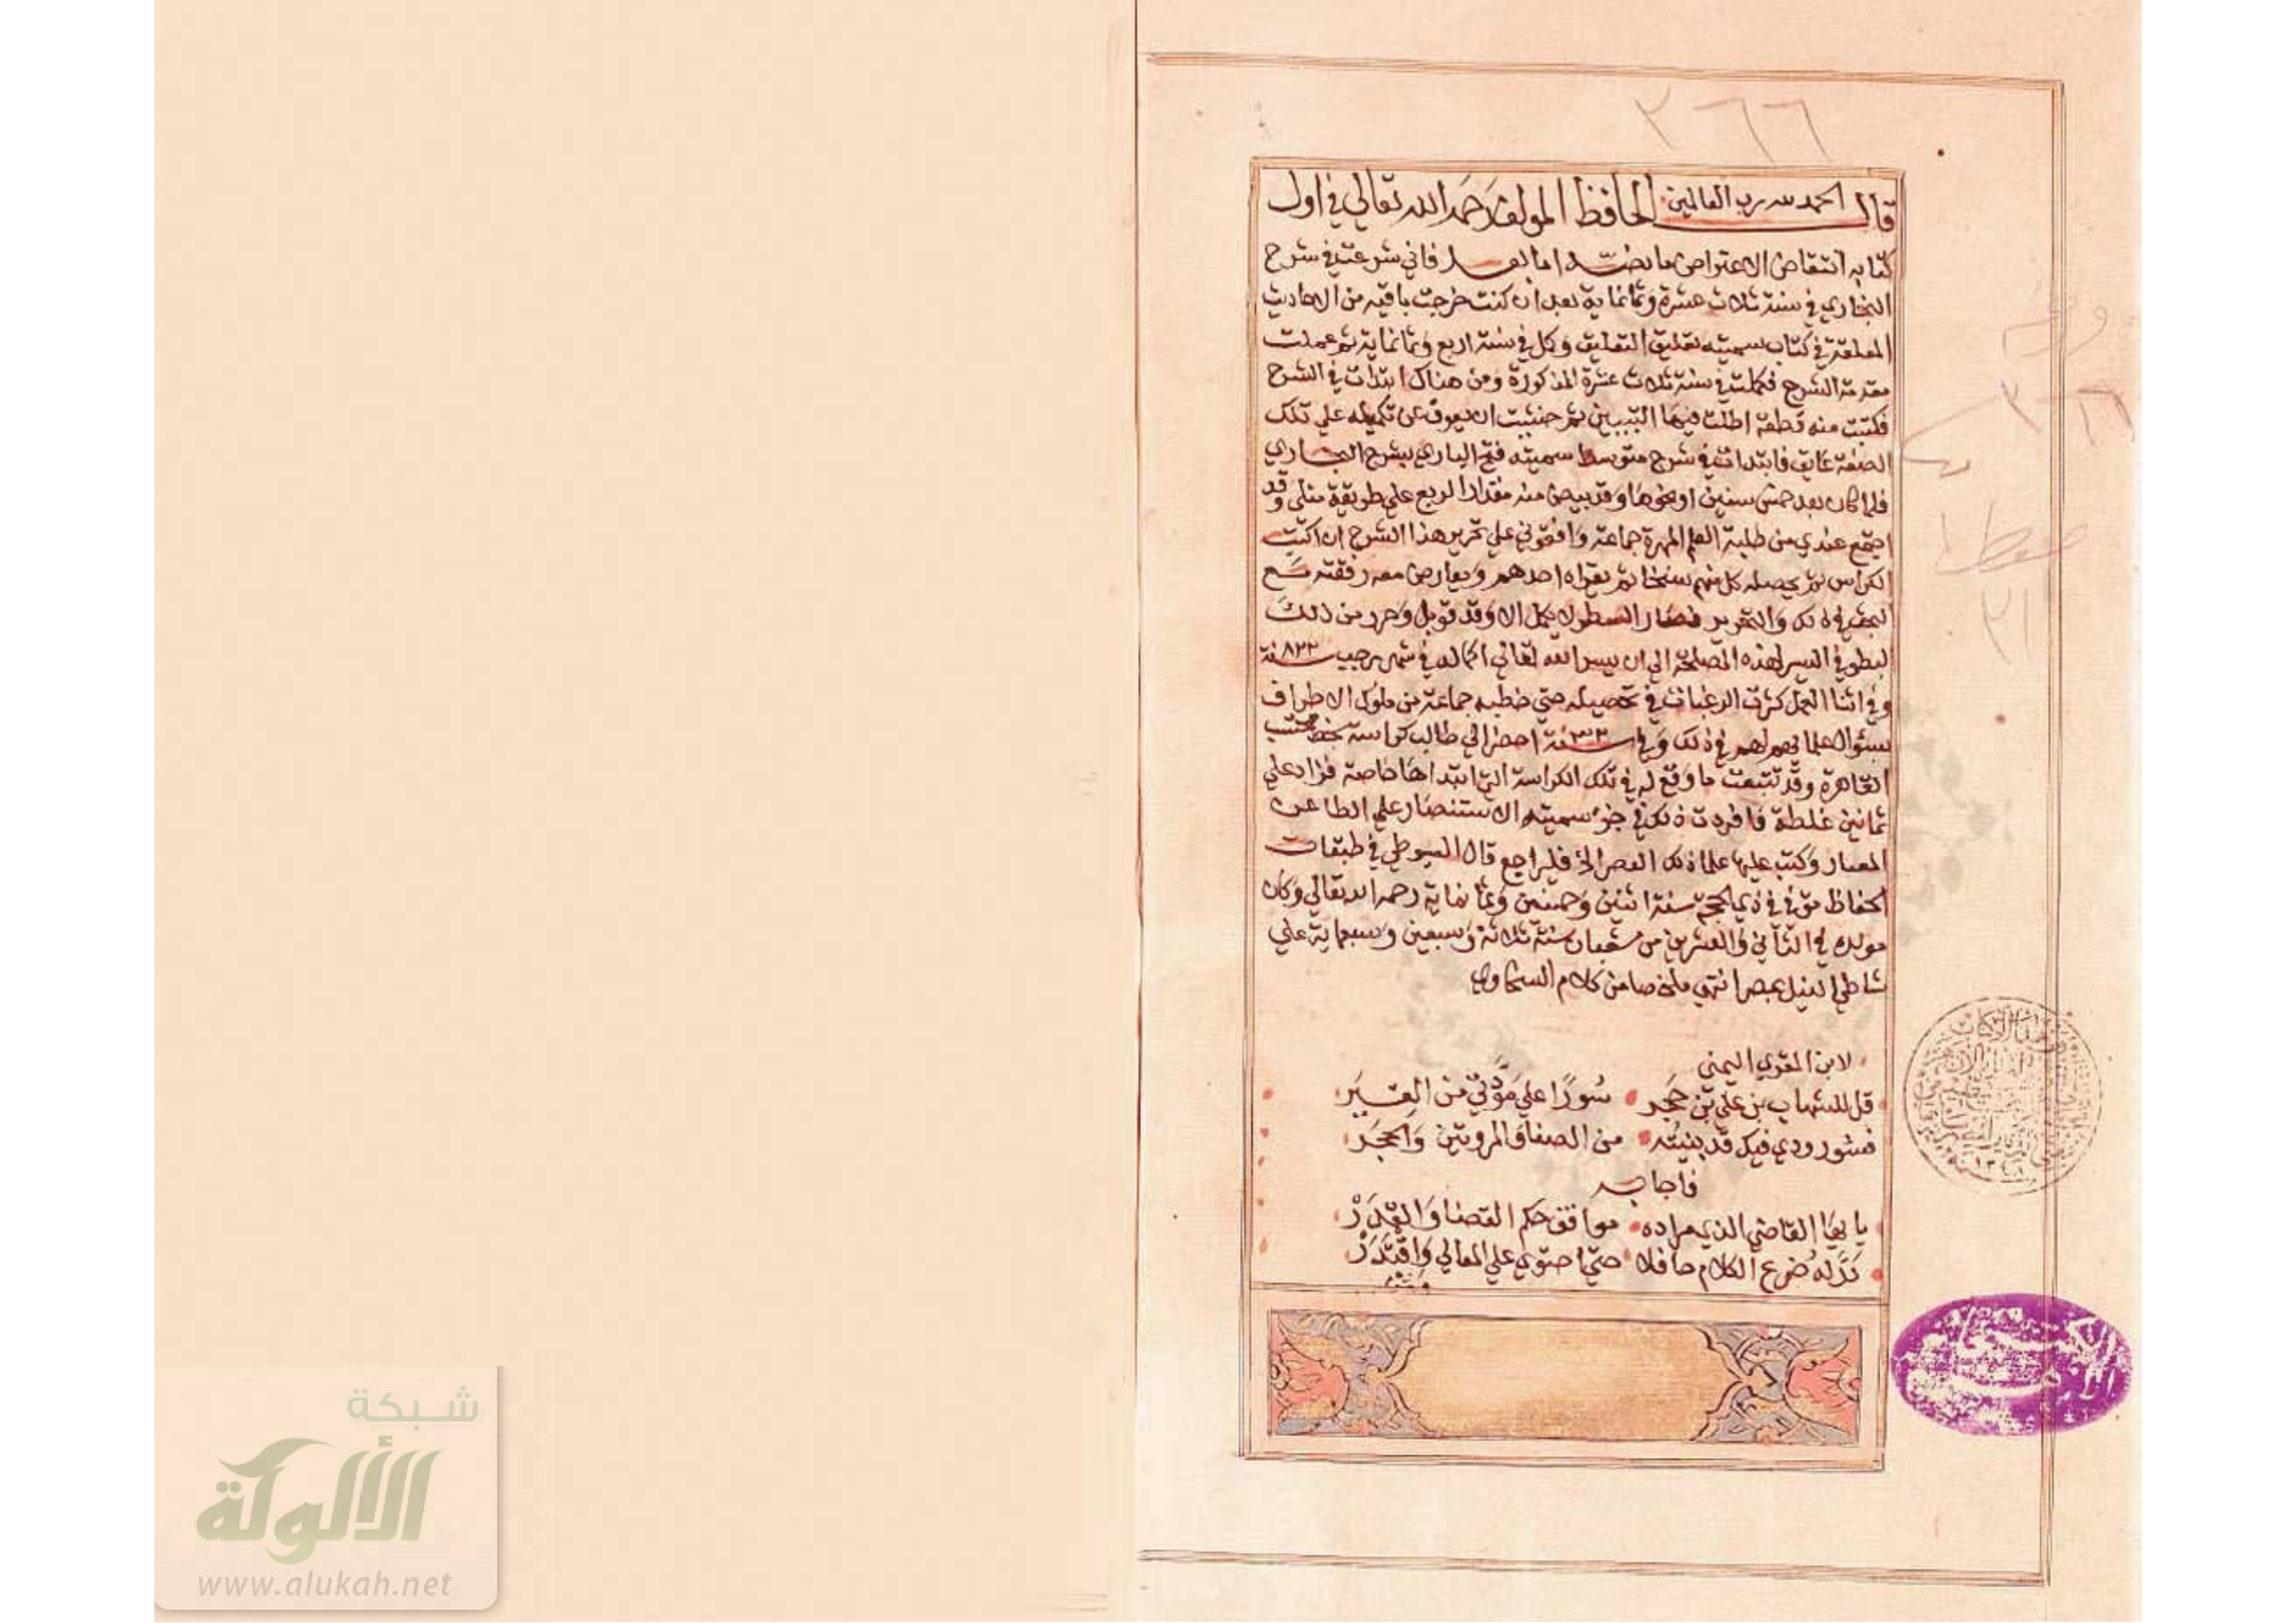 ٢٦٦
الحمد لله رب العالمين
قال الحافظ المولف رحمه الله تعالي في اول
كتابه انتقاض الاعتراض ما نصه اما بعد فاني شرعت في شرح
البخاري في سنة ثلاث عشرة وثمانماية بعد ان كنت خرجت ما فيه من الاحاديث
المعلقة في كتاب سميته تغليق التعليق وكمل في سنة اربع وثمانماية ثم عملت
مقدمة الشرح فكملت في سنة ثلاث عشرة المذكورة ومن هناك ابتدات في الشرح
فكتبت منه قطعة اطلت فيها التبيين ثم خشيت ان يعوق عن تكميله علي تلك
الصفة عايق فابتدات في شرح متوسط سميته فتح الباري بشرح البخاري
فلما كان بعد خمس سنين او نحوها وقد بيض منه مقدار الربع علي طريقة مثلي وقد
اجتمع عندي من طلبة العلم المهرة جماعة وافقوني علي تحرير هذا الشرح ان اكتب
الكراس ثم يحصله كل منهم نسخا ثم يقراه احدهم ويعارض معه رفقته مع
البحث في ذلك والتحرير فصار السطر لا يكمل الا وقد قوبل وحرر من ذلك
البطو في السير لهذه المصلحة الي ان يسر الله تعالي اكماله في شهر رجب سنة ٨٢٢
وفي اثنا العمل كثرت الرغبات في تحصيله حتي خطبه جماعة من ملوك الاطراف
بسؤال علمائهم لهم في ذلك وفي سنة ٢٢ احضر الي طالب كراسة بخط محتسب
القاهرة وقد تتبعت ما وقع له في تلك الكراسة التي ابتداها خاصة فزاد علي
ثمانين غلطة فافردت ذلك في جزء سميته الاستنصار علي الطاعن
المعثار وكتب عليها علما ذلك العصر الخ فليراجع قال السيوطي في طبقات
الحفاظ توفي في ذي الحجة سنة اثنين وخمسين وثمانماية رحمه الله تعالي وكان
مولده في الثاني والعشرين من شعبان سنة ثلاثة وسبعين وسبعماية علي
شاطي النيل بمصر انتهي ملخصا من كلام السخاوي
لابن المقري اليمني
قل للشهاب بن علي بن حجر سورا علي مودتي من الغير
فسور ودي فيك قد بنيته من الصفا والمروتين والحجر
فاجابه
يا ايها القاضي الذي مراده موافق حكم القضا والقدر
در له ضرع الكلام حافلا حتي احتوي علي المعالي واقتدر
شبكة
الألوكة
www.alukah.net